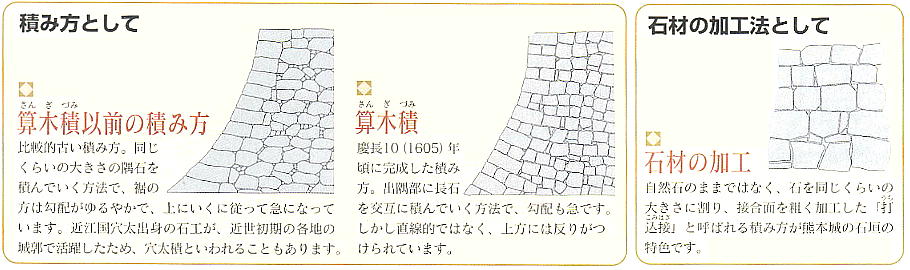 積み方として
さんぎづみ
算木積以前の積み方
比較的古い積み方。同じ
くらいの大きさの隅石を
積んでいく方法で、裾の
方は勾配がゆるやかで、上にいくに従って急になって
います。近江国穴太出身の石工が、近世初期の各地の
城郭で活躍したため、穴太積といわれることもあります。
さんぎづみ
算木積
慶長10(1605)年
頃に完成した積み
方。出隅部に長石
を交互に積んでいく方法で、勾配も急です。
しかし直線的ではなく、上方には反りがつ
けられています。
石材の加工法として
石材の加工
自然石のままではなく、石を同じくらいの
大きさに割り、接合面を粗く加工した「打
うち
込接」と呼ばれる積み方が熊本城の石垣の
こみはぎ
特色です。